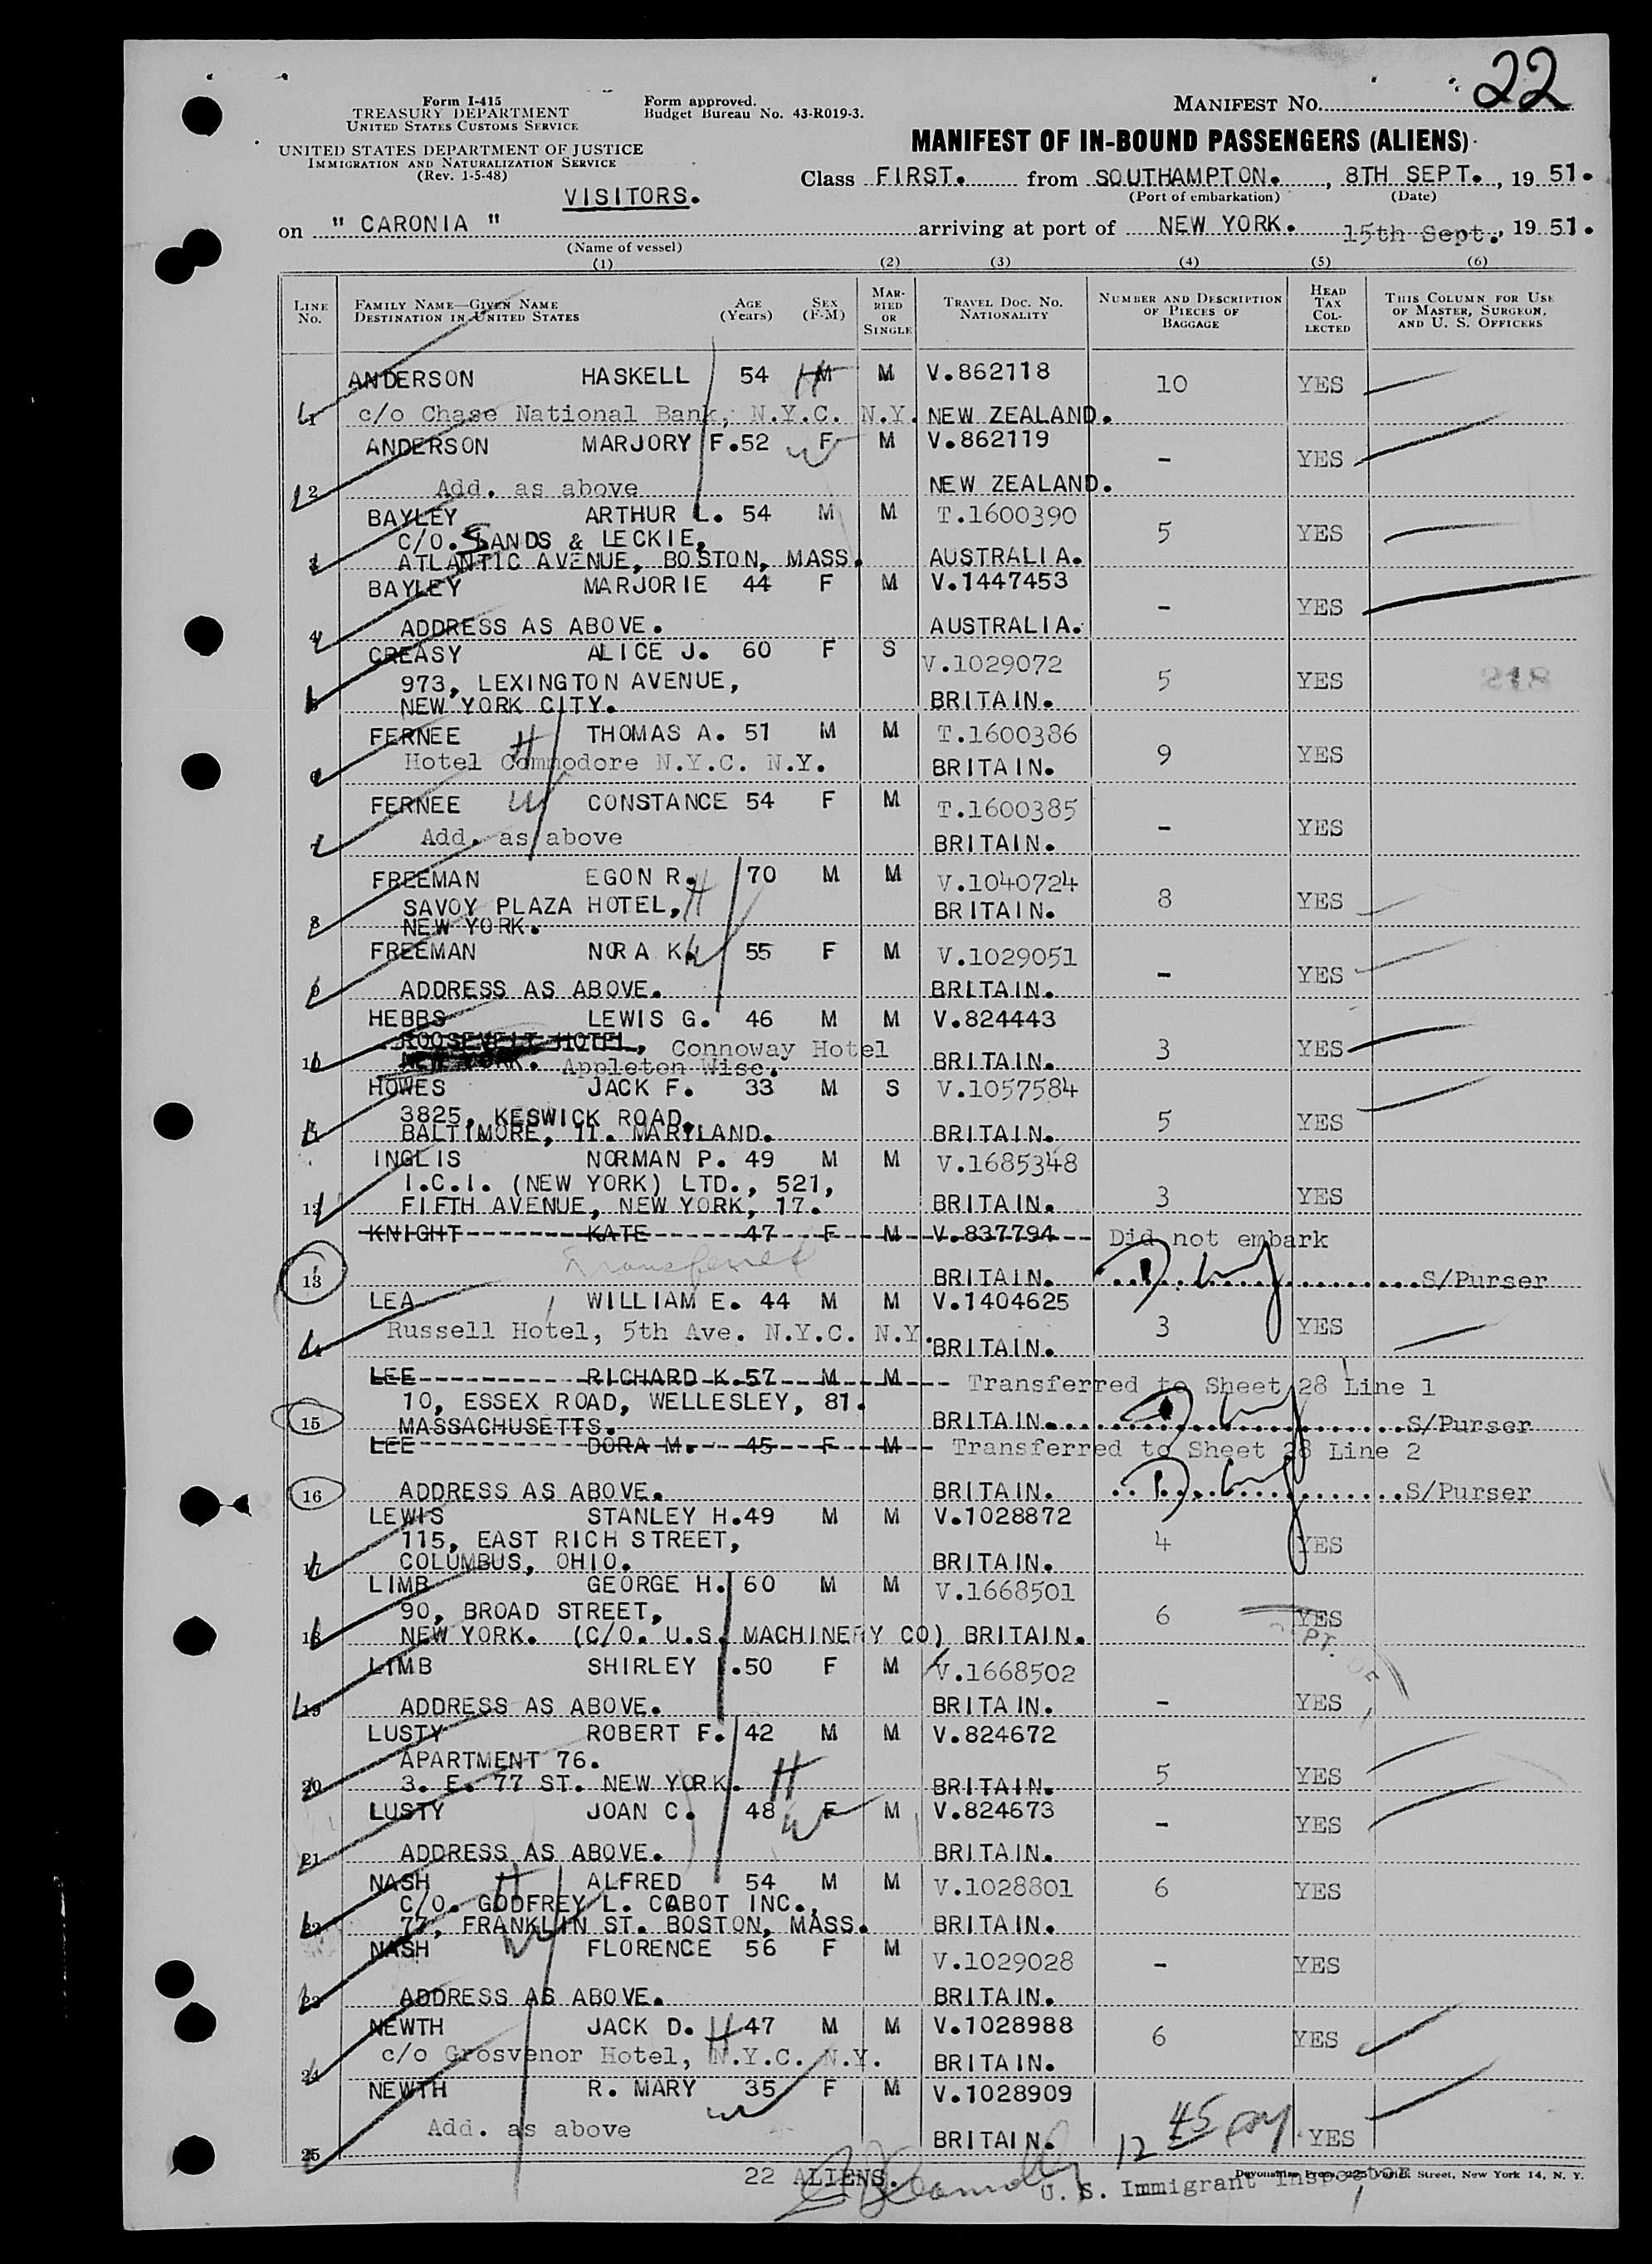 22
Form I-415
TREASURY DEPARTMENT
UNITED STATES CUSTOMS SERVICE
Form approved.
Budget Bureau No. 43-R019-3.
MANIFEST No.
UNITED STATES DEPARTMENT OF JUSTICE
IMMIGRATION AND NATURALIZATION SERVICE
(Rev. 1-5-48)
MANIFEST OF IN-BOUND PASSENGERS (ALIENS)
VISITORS.
Class FIRST. from SOUTHAMPTON., 8TH SEPT., 19 51.
(Port of embarkation) (Date)
on " CARONIA " arriving at port of NEW YORK. 15th Sept., 19 51.
(Name of vessel)
(1) (2) (3) (4) (5) (6)
LINE No. FAMILY NAME—GIVEN NAME DESTINATION IN UNITED STATES AGE (Years) SEX (F-M) MARRIED OR SINGLE TRAVEL DOC. NO. NATIONALITY NUMBER AND DESCRIPTION OF PIECES OF BAGGAGE HEAD TAX COLLECTED THIS COLUMN FOR USE OF MASTER, SURGEON, AND U. S. OFFICERS
ANDERSON HASKELL 54 M H M V.862118 10 YES
1 c/o Chase National Bank, N.Y.C. N.Y. NEW ZEALAND.
ANDERSON MARJORY F. 52 F W M V.862119 - YES
2 Add. as above NEW ZEALAND.
BAYLEY ARTHUR L. 54 M M T.1600390 5 YES
C/O. SANDS & LECKIE,
3 ATLANTIC AVENUE, BOSTON, MASS. AUSTRALIA.
BAYLEY MARJORIE 44 F M V.1447453 - YES
4 ADDRESS AS ABOVE. AUSTRALIA.
CREASY ALICE J. 60 F S V.1029072 5 YES
973, LEXINGTON AVENUE,
5 NEW YORK CITY. BRITAIN.
FERNEE H THOMAS A. 51 M M T.1600386 9 YES
6 Hotel Commodore N.Y.C. N.Y. BRITAIN.
FERNEE W CONSTANCE 54 F M T.1600385 - YES
7 Add. as above BRITAIN.
FREEMAN EGON R. 70 M M V.1040724 8 YES
SAVOY PLAZA HOTEL, H BRITAIN.
8 NEW YORK.
FREEMAN NORA K. W 55 F M V.1029051 - YES
9 ADDRESS AS ABOVE. BRITAIN.
HEBBS LEWIS G. 46 M M V.824443 3 YES
ROOSEVELT HOTEL, Connoway Hotel
10 NEW YORK. Appleton Wisc. BRITAIN.
HOWES JACK F. 33 M S V.1057584 5 YES
3825, KESWICK ROAD,
11 BALTIMORE, 11. MARYLAND. BRITAIN.
INGLIS NORMAN P. 49 M M V.1685348 3 YES
I.C.I. (NEW YORK) LTD., 521,
12 FIFTH AVENUE, NEW YORK, 17. BRITAIN.
KNIGHT KATE 47 F M V.837794 Did not embark
Transferred
13 BRITAIN. S/Purser
LEA WILLIAM E. 44 M M V.1404625 3 YES
14 Russell Hotel, 5th Ave. N.Y.C. N.Y. BRITAIN.
LEE RICHARD K. 57 M M Transferred to Sheet 28 Line 1
10, ESSEX ROAD, WELLESLEY, 81.
15 MASSACHUSETTS. BRITAIN. S/Purser
LEE DORA M. 45 F M Transferred to Sheet 28 Line 2
16 ADDRESS AS ABOVE. BRITAIN. S/Purser
LEWIS STANLEY H. 49 M M V.1028872 4 YES
115, EAST RICH STREET,
17 COLUMBUS, OHIO. BRITAIN.
LIMB GEORGE H. 60 M M V.1668501 6 YES
90, BROAD STREET,
18 NEW YORK. (C/O. U.S. MACHINERY CO) BRITAIN.
LIMB SHIRLEY 50 F M V.1668502 - YES
19 ADDRESS AS ABOVE. BRITAIN.
LUSTY ROBERT F. 42 M M V.824672 5 YES
APARTMENT 76.
20 3. E. 77 ST. NEW YORK. H BRITAIN.
LUSTY JOAN C. 48 F W M V.824673 - YES
21 ADDRESS AS ABOVE. BRITAIN.
NASH H ALFRED 54 M M V.1028801 6 YES
C/O. GODFREY L. CABOT INC.,
22 77, FRANKLIN ST. BOSTON, MASS. BRITAIN.
NASH W FLORENCE 56 F M V.1029028 - YES
23 ADDRESS AS ABOVE. BRITAIN.
NEWTH JACK D. H 47 M M V.1028988 6 YES
24 c/o Grosvenor Hotel, N.Y.C. N.Y. BRITAIN.
NEWTH R. MARY 35 F M V.1028909 YES
W
25 Add. as above BRITAIN. 12 45
22 ALIENS.
Devonshire Press, 225 Varick Street, New York 14, N. Y.
U. S. Immigrant Inspector